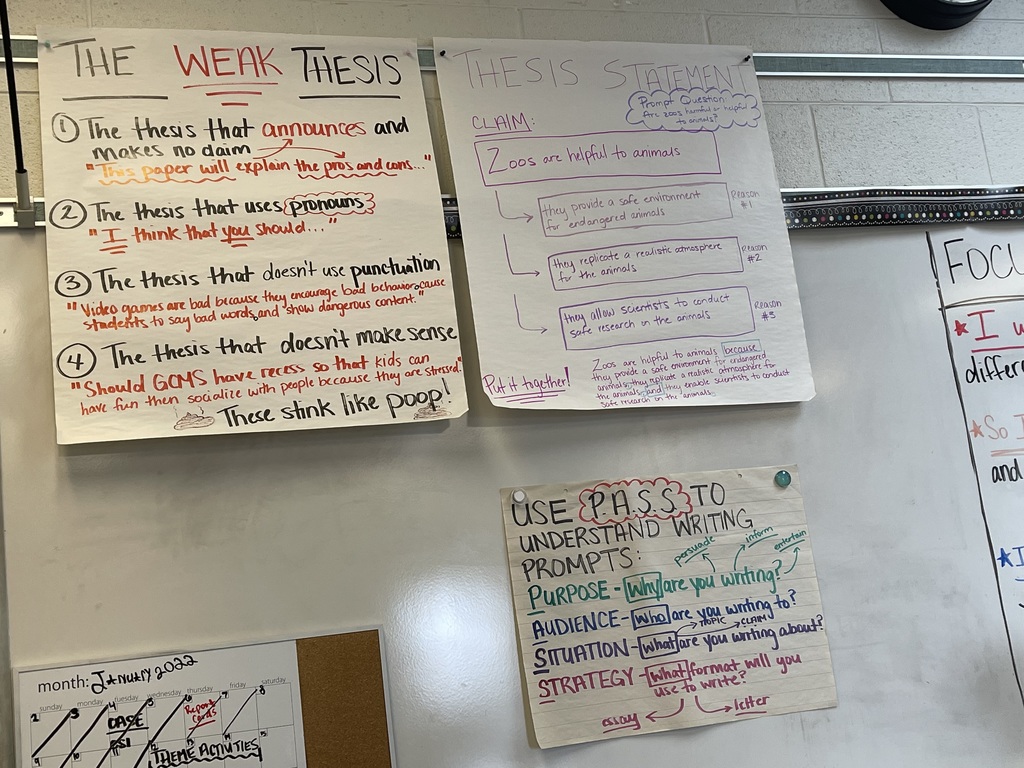 THE WEAK THESIS
① The thesis that announces and
makes no claim
"This paper will explain the pros and cons..."
② The thesis that uses pronouns
"I think that you should..."
③ The thesis that doesn't use punctuation
"Video games are bad because they encourage bad behavior, cause
students to say bad words, and show dangerous content."
④ The thesis that doesn't make sense
"Should GCMS have recess so that kids can
have fun then socialize with people because they are stressed."
These stink like poop!
THESIS STATEMENT
Prompt Question
Are zoos harmful or helpful
to animals?
CLAIM:
Zoos are helpful to animals
they provide a safe environment
for endangered animals
Reason
#1
they replicate a realistic atmosphere
for the animals
Reason
#2
they allow scientists to conduct
safe research on the animals
Reason
#3
Put it together!
Zoos are helpful to animals because
they provide a safe environment for endangered
animals, they replicate a realistic atmosphere for
the animals, and they enable scientists to conduct
safe research on the animals.
FOCU
I w
differe
So I
and
I
USE P.A.S.S. TO
UNDERSTAND WRITING
PROMPTS:
persuade inform entertain
PURPOSE - why are you writing?
AUDIENCE - who are you writing to?
TOPIC → CLAIM
SITUATION - what are you writing about?
STRATEGY - what format will you
use to write?
essay letter
month: January 2022
sunday monday tuesday wednesday thursday friday saturday
2 3 4 5 6 7 8
CASE
Report
Cards
9 10 11 12 13 14 15
THEME ACTIVITIES